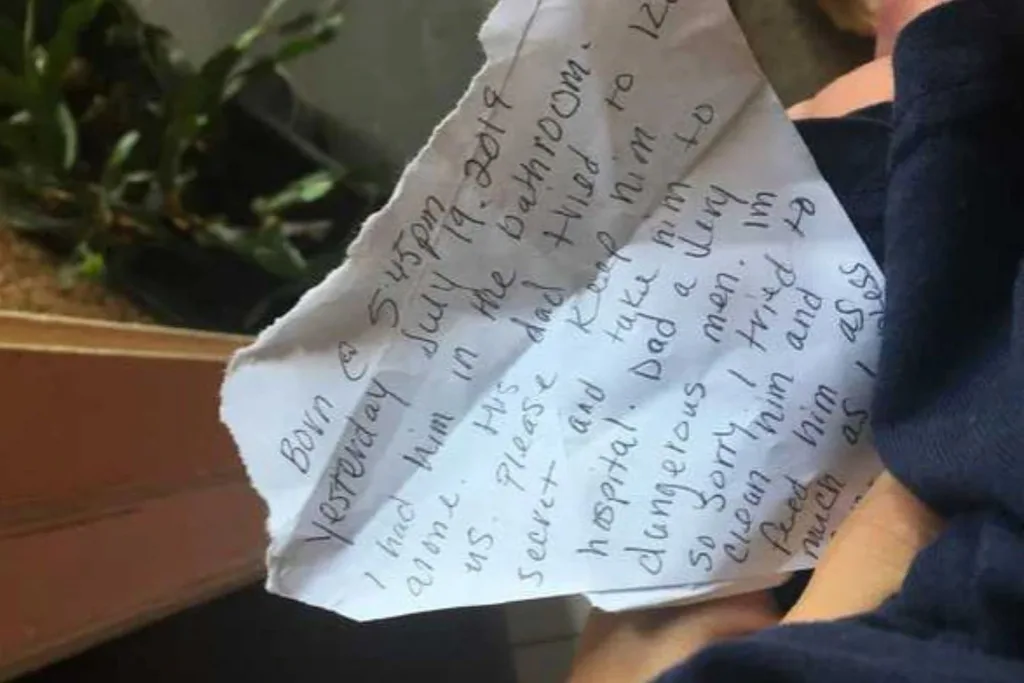 Born @ 5:45pm
Yesterday July 19. 2019
I had him in the bathroom.
alone. His dad tried to
us. Please keep him
secret and take him to
hospital. Dad a very
dangerous men. Im
so sorry I tried to
clean him and to
feed him as
much as I